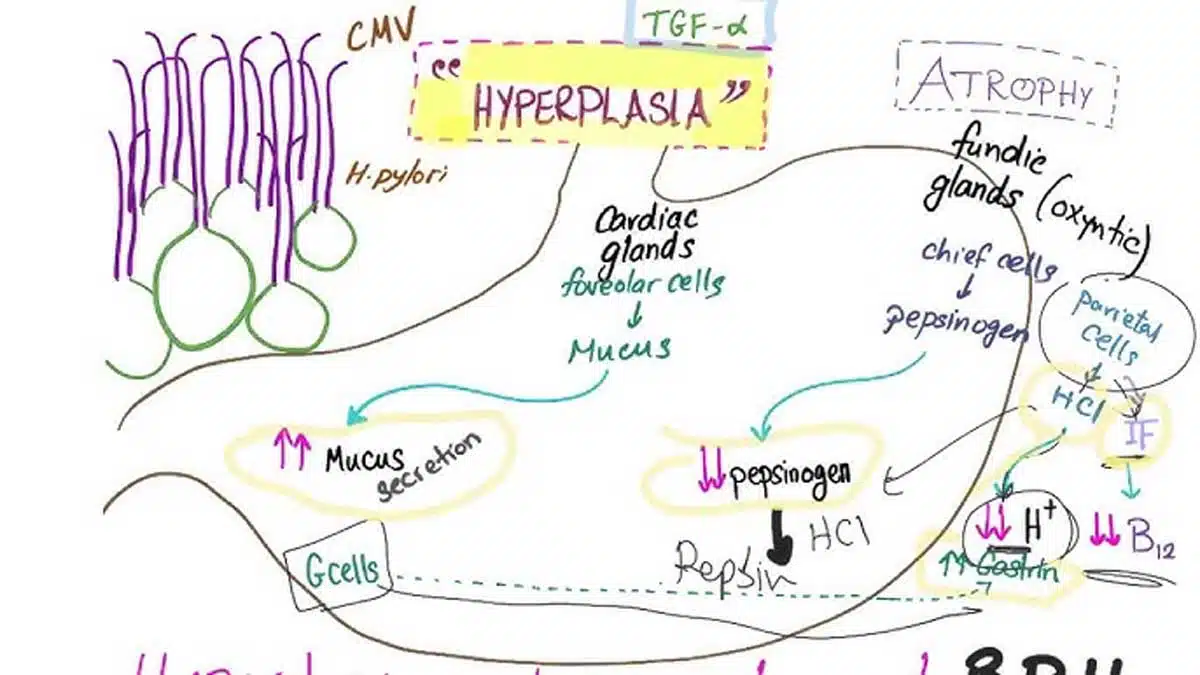 CMV
TGF-α
"HYPERPLASIA"
ATROPHY
H.pylori
fundic
glands (oxyntic)
Cardiac
glands
foveolar cells
↓
Mucus
chief cells
↓
pepsinogen
parietal
cells
HCl
IF
↑↑ Mucus
secretion
↓↓ pepsinogen
↓ HCl
Pepsin
↓↓ H⁺
↑↑ Gastrin
↓↓ B12
Gcells